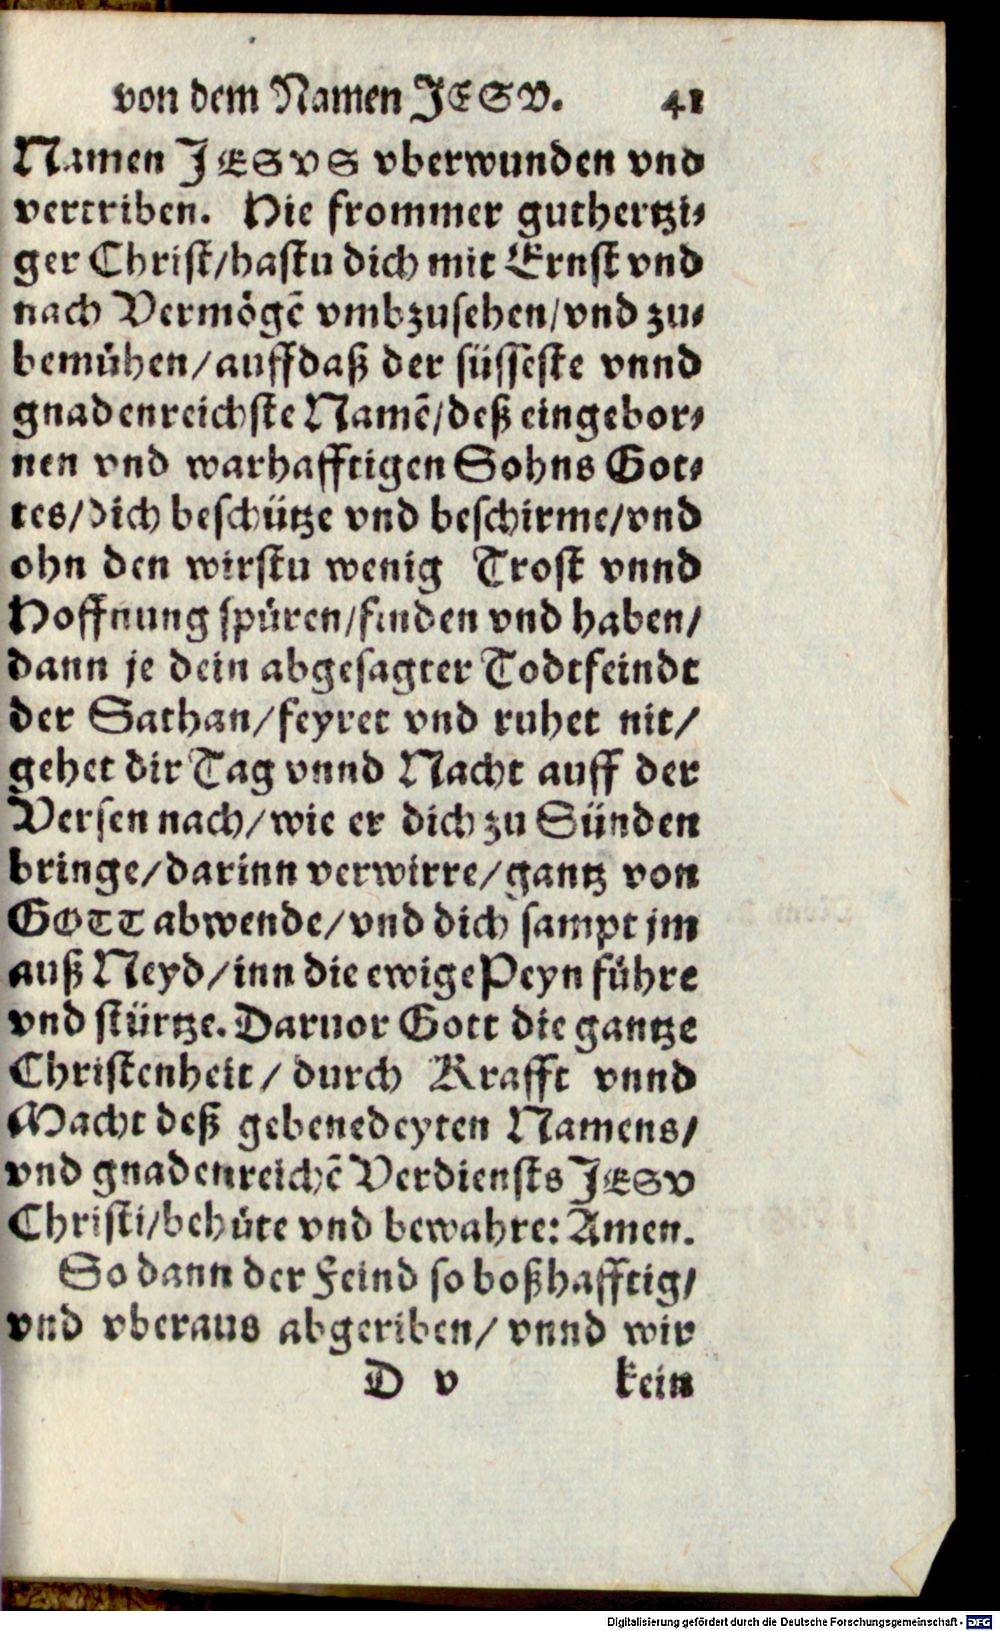 von dem Namen JESV. 41
Namen JESVS vberwunden vnd
vertriben. Hie frommer guthertzi⸗
ger Christ/hastu dich mit Ernst vnd
nach Vermögē vmbzusehen/vnd zu⸗
bemühen/auffdaß der süsseste vnnd
gnadenreichste Namē/deß eingebor⸗
nen vnd warhafftigen Sohns Got⸗
tes/dich beschütze vnd beschirme/vnd
ohn den wirstu wenig Trost vnnd
Hoffnung spüren/finden vnd haben/
dann je dein abgesagter Todtfeindt
der Sathan/feyret vnd ruhet nit/
gehet dir Tag vnnd Nacht auff der
Versen nach/wie er dich zu Sünden
bringe/darinn verwirre/gantz von
GOTT abwende/vnd dich sampt jm
auß Neyd/inn die ewige Peyn führe
vnd stürtze. Daruor Gott die gantze
Christenheit/durch Krafft vnnd
Macht deß gebenedeyten Namens/
vnd gnadenreichē Verdiensts JESV
Christi/behüte vnd bewahre: Amen.
So dann der Feind so boßhafftig/
vnd vberaus abgeriben/vnnd wir
D v kein
Digitalisierung gefördert durch die Deutsche Forschungsgemeinschaft - DFG